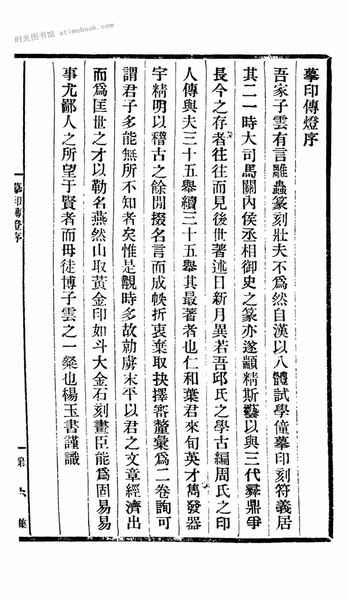 时光图书馆 atimebook.com
摹印傳燈序
吾家子雲有言雕蟲篆刻壯夫不爲然自漢以八體試學僮摹印刻符義居
其二一時大司馬關內侯丞相御史之篆亦遂顓精斯藝以與三代彝鼎爭
長今之存者往往而見後世著述日新月異若吾邱氏之學古編周氏之印
人傳與夫三十五舉續三十五舉其最著者也仁和葉君來旬英才雋發器
宇精明以稽古之餘閒掇名言而成帙折衷棄取抉擇審釐彙爲二卷詢可
謂君子多能無所不知者矣惟是觀時多故勍虜未平以君之文章經濟出
而爲匡世之才以勒名燕然山取黃金印如斗大金石刻畫臣能爲固易易
事尤鄙人之所望于賢者而毋徒博子雲之一粲也楊玉書謹識
摹印傳燈序